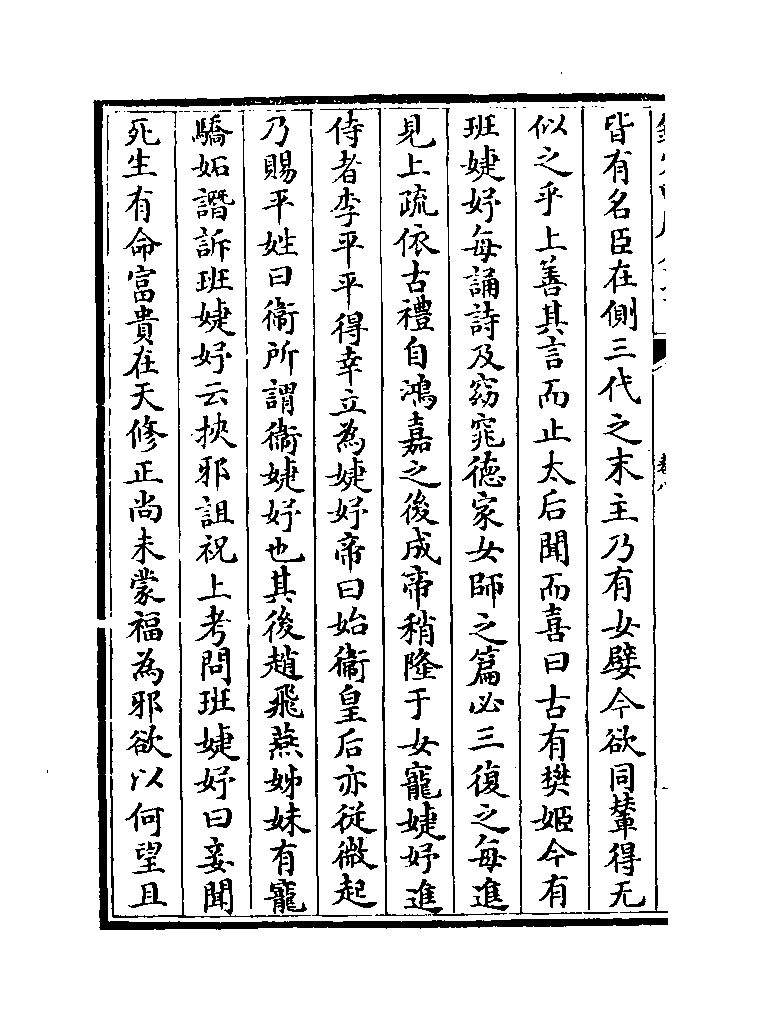 皆有名臣在側三代之末主乃有女嬖今欲同輦得无
似之乎上善其言而止太后聞而喜曰古有樊姬今有
班婕妤每誦詩及窈窕徳家女師之篇必三復之每進
見上疏依古禮自鴻嘉之後成帝稍隆于女寵婕妤進
侍者李平平得幸立為婕妤帝曰始衞皇后亦從微起
乃賜平姓曰衞所謂衞婕妤也其後趙飛燕姊妹有寵
驕妬譖訴班婕妤云挾邪詛祝上考問班婕妤曰妾聞
死生有命富貴在天修正尚未蒙福為邪欲以何望且